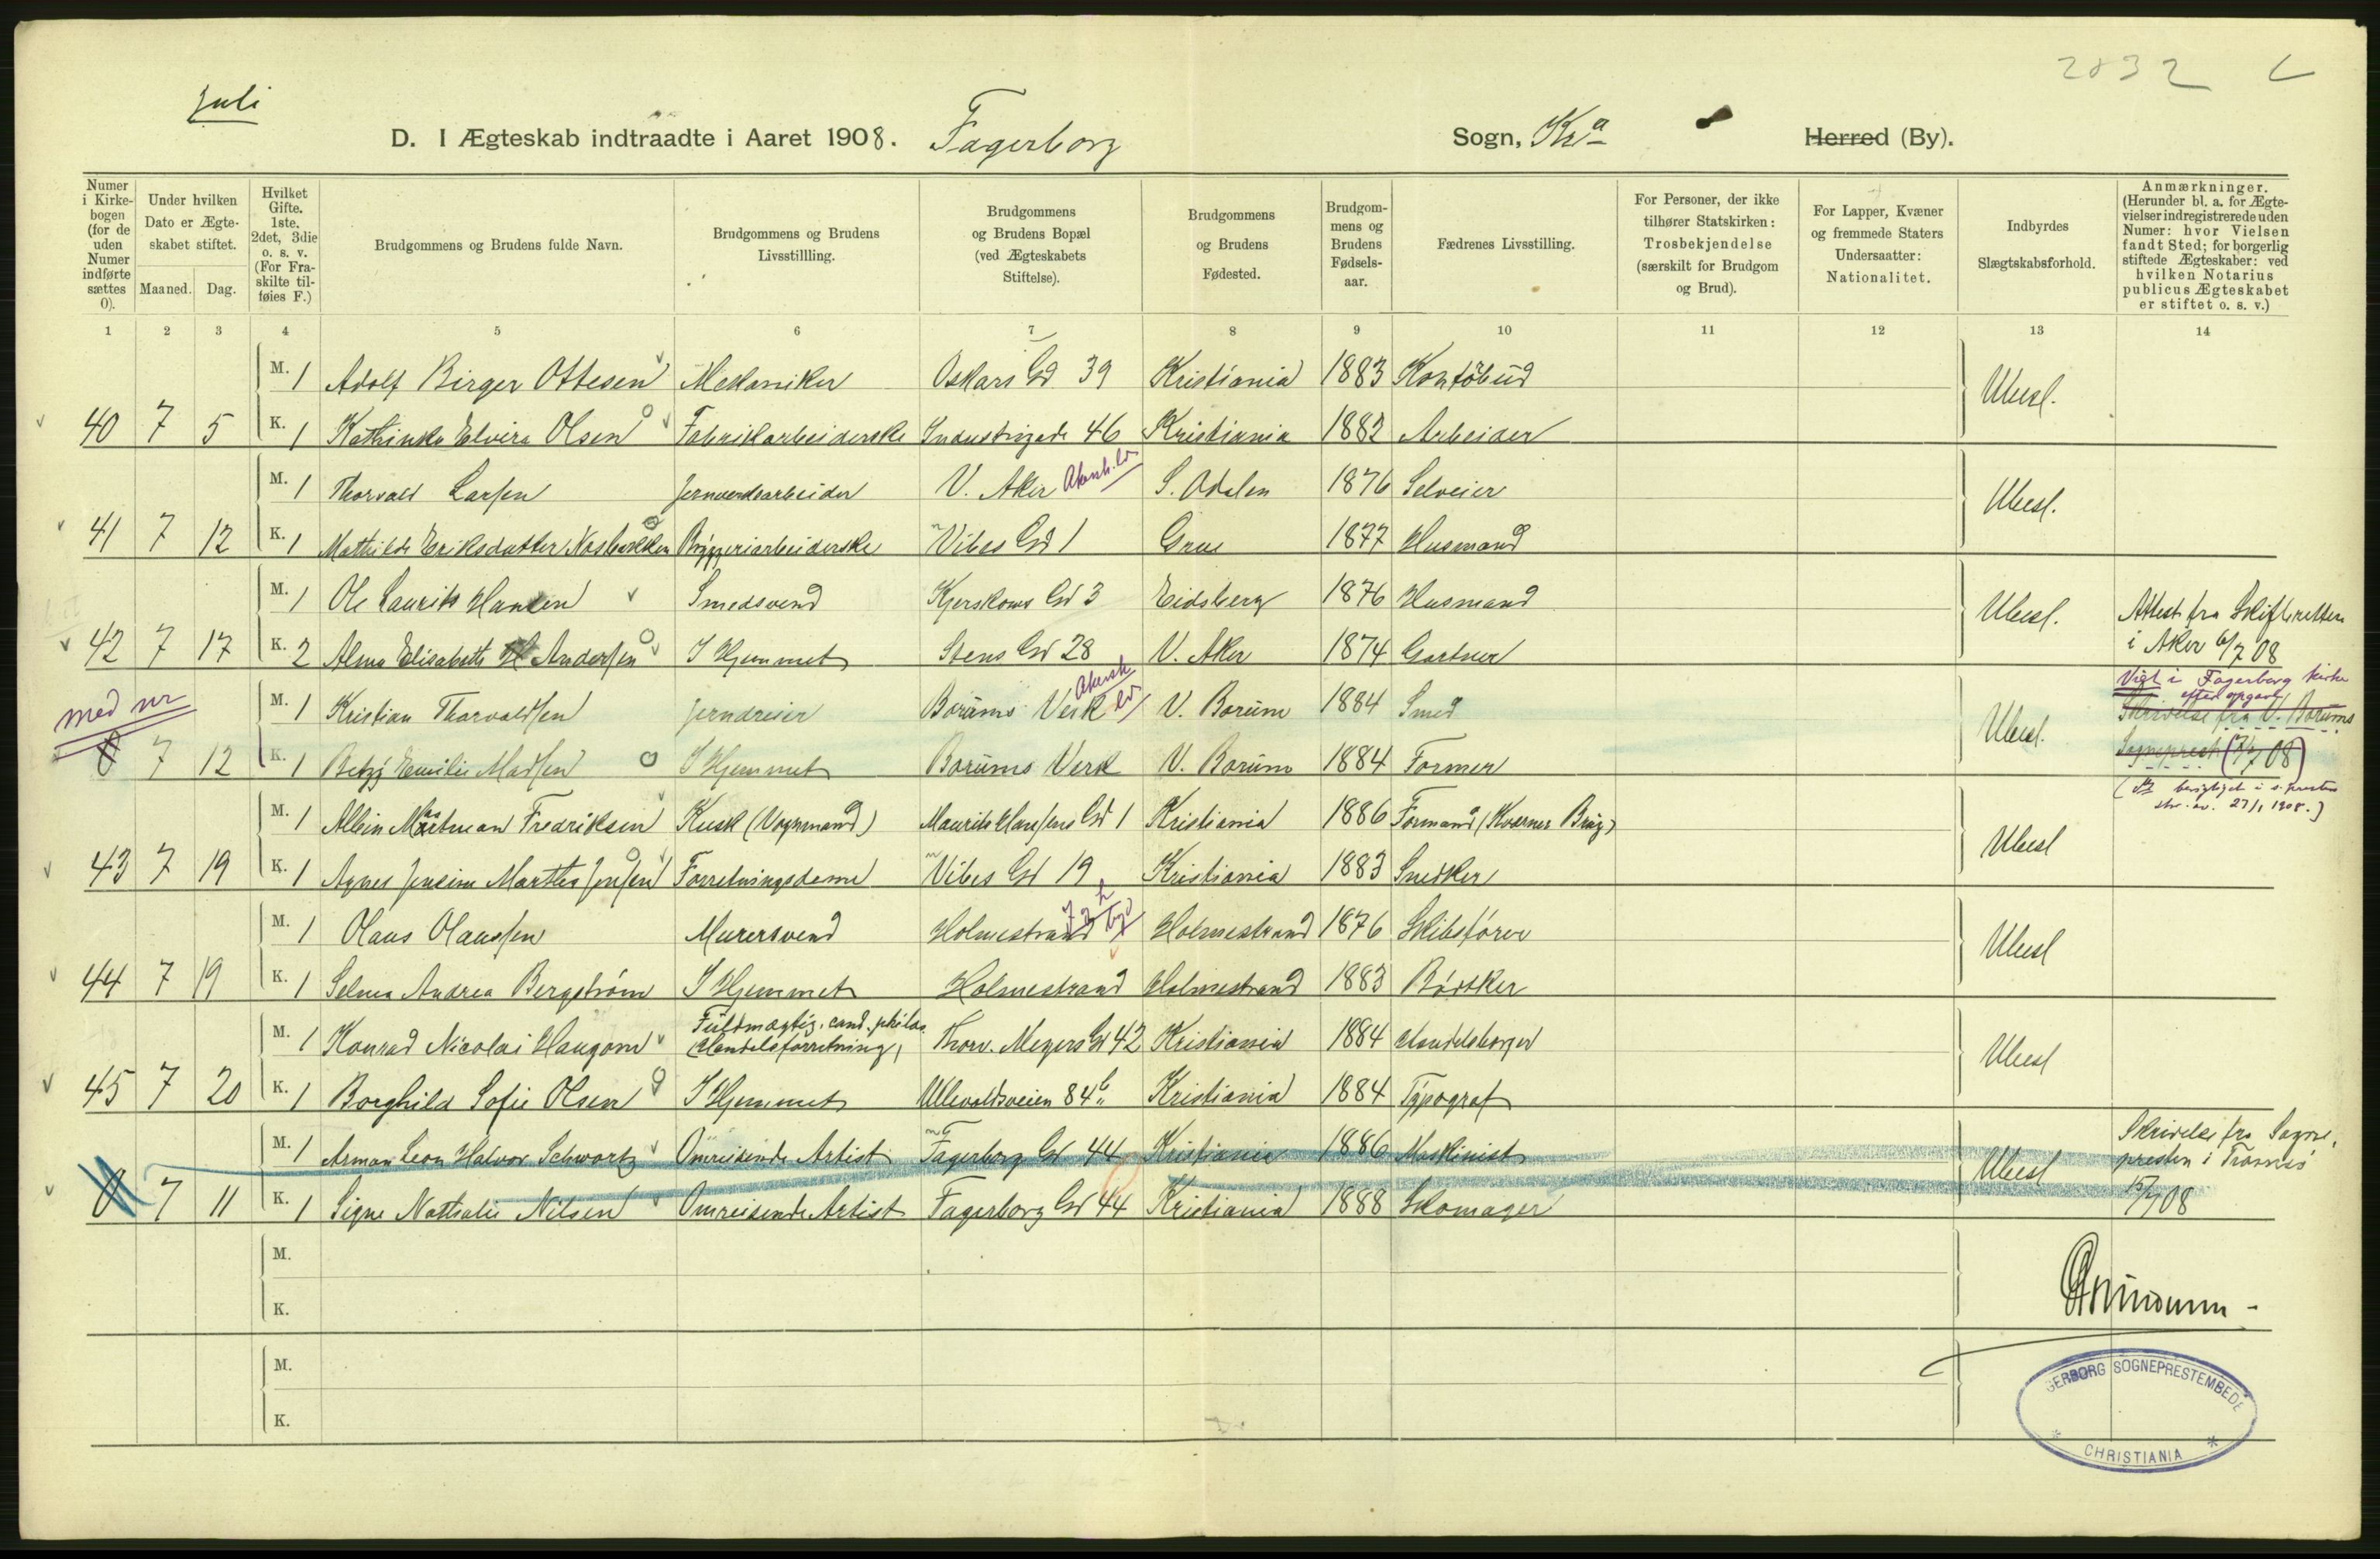 2832
Juli
D. I Ægteskab indtraadte i Aaret 1908. Fagerborg Sogn, Kra Herred (By).
Numer i Kirkebogen (for de uden Numer indførte sættes 0).
Under hvilken Dato er Ægteskabet stiftet.
Maaned. Dag.
Hvilket Gifte. 1ste, 2det, 3die o. s. v. (For Fraskilte tilføies F.)
Brudgommens og Brudens fulde Navn.
Brudgommens og Brudens Livsstillling.
Brudgommens og Brudens Bopæl (ved Ægteskabets Stiftelse).
Brudgommens og Brudens Fødested.
Brudgommens og Brudens Fødselsaar.
Fædrenes Livsstilling.
For Personer, der ikke tilhører Statskirken: Trosbekjendelse (særskilt for Brudgom og Brud).
For Lapper, Kvæner og fremmede Staters Undersaatter: Nationalitet.
Indbyrdes Slægtskabsforhold.
Anmærkninger. (Herunder bl. a. for Ægtevielser indregistrerede uden Numer: hvor Vielsen fandt Sted; for borgerlig stiftede Ægteskaber: ved hvilken Notarius publicus Ægteskabet er stiftet o. s. v.)
1 2 3 4 5 6 7 8 9 10 11 12 13 14
M. 1 Adolf Birger Ottesen Mekaniker Oskars Gd 39 Kristiania 1883 Kontorbud
Ubesl.
40 7 5 K. 1 Kathinka Elvira Olsen Fabrikarbeiderske Industrigade 46 Kristiania 1882 Arbeider
M. 1 Thorvald Larsen Jernverksarbeider V. Aker Akersh. S. Odalen 1876 Selveier
Ubesl.
41 7 12 K. 1 Mathilde Eriksdatter Nosbakken Bryggeriarbeiderske Vibes Gd 1 Grue 1877 Husmand
M. 1 Ole Laurits Hansen Smedsvend Gd 3 Eidsberg 1876 Husmand
Ubesl. Attest fra Skifteretten
42 7 17 K. 2 Alma Elisabeth Andersen I Hjemmet Stens Gd 28 V. Aker 1874 Gartner
i Aker 6/7 08
med nr
M. 1 Kristian Thorvaldsen Jerndreier Bærums Verk Akersh V. Bærum 1884 Smed
Ubesl. Viet i Fagerborg kirke
efter opgave
Skrivelse fra V. Bærums
0 7 12 K. 1 Betzy Emilie Madsen I Hjemmet Bærums Verk V. Bærum 1884 Former
Sogneprest (7/7 08)
M. 1 Albin Martman Fredriksen Kusk (Vognmand) Maurits Hansens Gd 1 Kristiania 1886 Formand (Kværner Brug)
Ubesl
(berigtiget i s. prestens
skr. av. 27/1 1908.)
43 7 19 K. 1 Agnes Jensine Marthea Jensen Forretningsdame Vibes Gd 19 Kristiania 1883 Snedker
M. 1 Olaus Olaussen Murersvend Holmestrand Holmestrand 1876 Skibsfører
Ubesl
44 7 19 K. 1 Selma Andrea Bergstrøm I Hjemmet Holmestrand Holmestrand 1883 Bødker
M. 1 Konrad Nicolai Haugom Fuldmægtig, cand. philos. (Handelsforretning) Thorv. Meyers Gd 42 Kristiania 1884 Handelsborger
Ubesl
45 7 20 K. 1 Borghild Sofie Olsen I Hjemmet Ullevoldsveien 84 b Kristiania 1884 Typograf
M. 1 Arman Leon Halvor Schwartz Omreisende Artist Fagerborg Gd 44 Kristiania 1886 Maskinist
Ubesl Skrivelse fra Sogne-
presten i Tromsø
0 7 11 K. 1 Signe Nathalie Nilsen Omreisende Artist Fagerborg Gd 44 Kristiania 1888 Skomager
15/7 08
M.
K.
M.
K.
GERBORG SOGNEPRESTEMBEDE
CHRISTIANIA